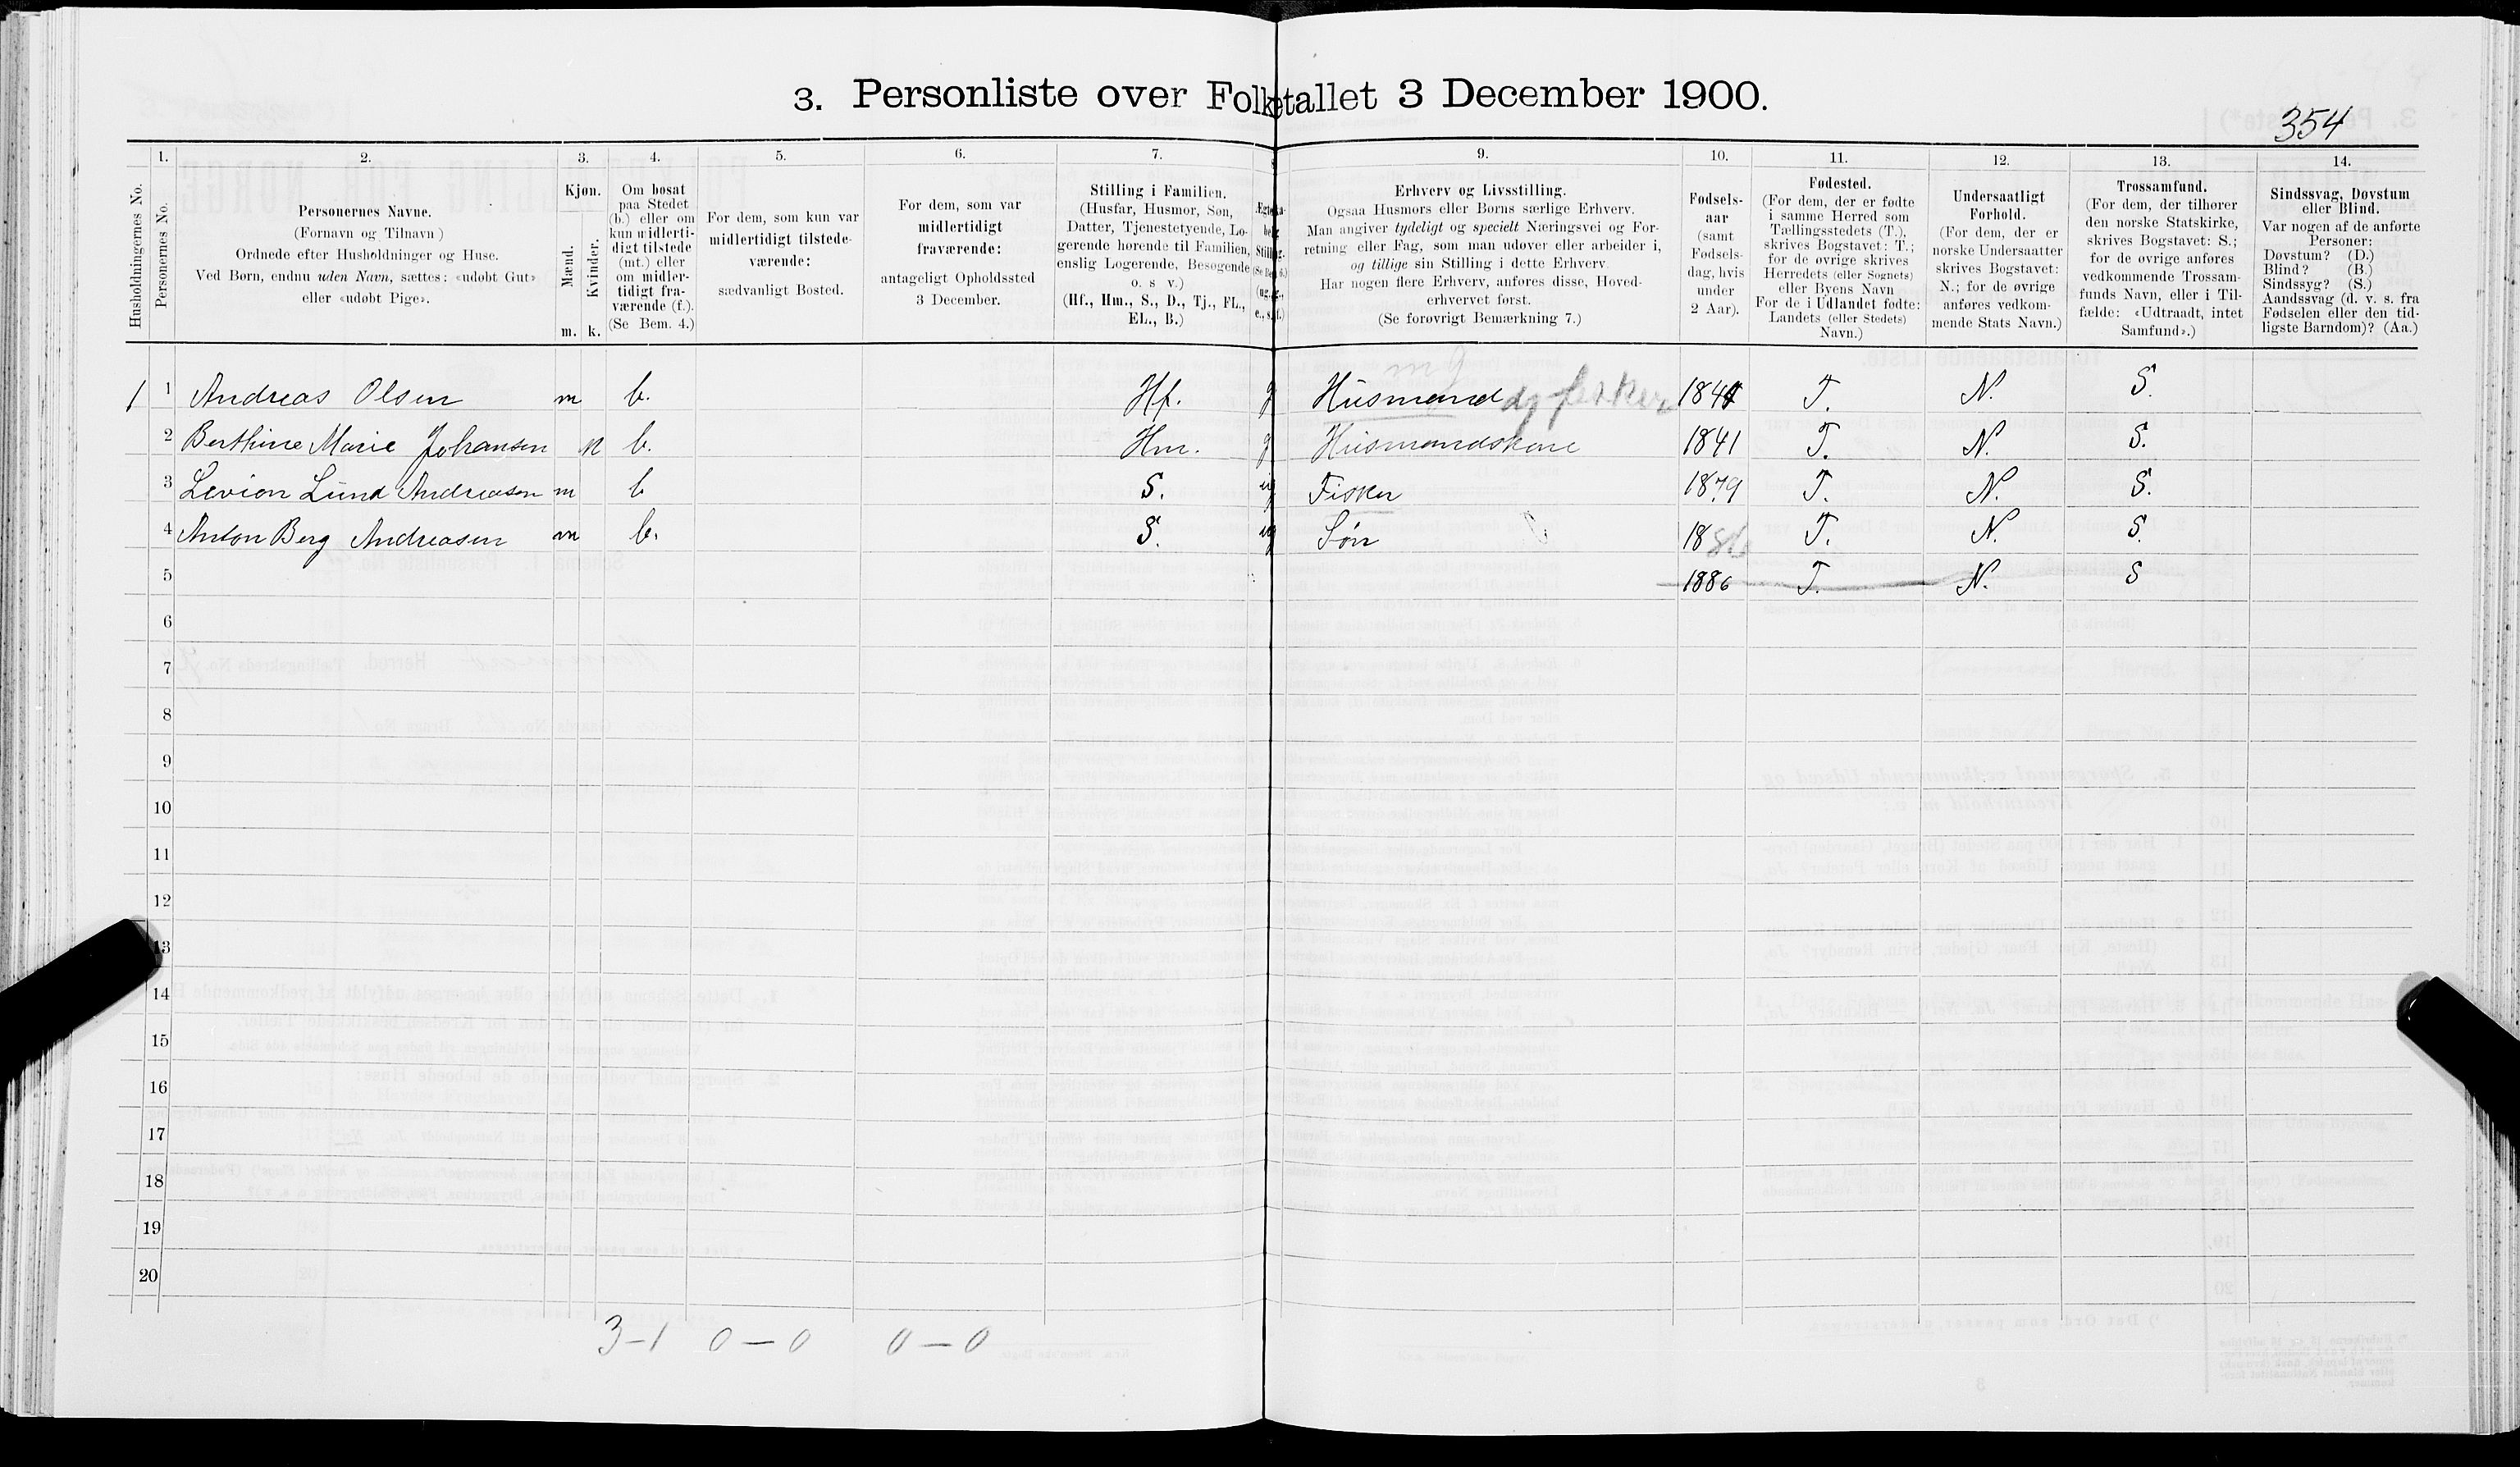 3. Personliste over Folketallet 3 December 1900.
354
1. 2. 3. 4. 5. 6. 7. 9. 10. 11. 12. 13. 14.
Husholdningernes No.
Personernes No.
Personernes Navne.
(Fornavn og Tilnavn)
Ordnede efter Husholdninger og Huse.
Ved Børn, endnu uden Navn, sættes: «udøbt Gut»
eller «udøbt Pige».
Kjøn.
Mænd.
Kvinder.
m. k.
Om bosat
paa Stedet
(b.) eller om
kun midlerti-
digt tilstede
(mt.) eller
om midler-
tidigt fra-
værende (f.).
(Se Bem. 4.)
For dem, som kun var
midlertidigt tilstede-
værende:
sædvanligt Bosted.
For dem, som var
midlertidigt
fraværende:
antageligt Opholdssted
3 December.
Stilling i Familien.
(Husfar, Husmor, Søn,
Datter, Tjenestetyende, Lo-
gerende hørende til Familien,
enslig Logerende, Besøgende
o. s. v.)
(Hf., Hm., S., D., Tj., FL.,
EL., B.)
Erhverv og Livsstilling.
Ogsaa Husmors eller Børns særlige Erhverv.
Man angiver tydeligt og specielt Næringsvei og For-
retning eller Fag, som man udøver eller arbeider i,
og tillige sin Stilling i dette Erhverv.
Har nogen flere Erhverv, anføres disse, Hoved-
erhvervet først.
(Se forøvrigt Bemærkning 7.)
Fødsels-
aar
(samt
Fødsels-
dag, hvis
under
2 Aar).
Fødested.
(For dem, der er fødte
i samme Herred som
Tællingsstedets (T.),
skrives Bogstavet: T.;
for de øvrige skrives
Herredets (eller Sognets)
eller Byens Navn
For de i Udlandet fødte:
Landets (eller Stedets)
Navn.)
Undersaatligt
Forhold.
(For dem, der er
norske Undersaatter
skrives Bogstavet:
N.; for de øvrige
anføres vedkom-
mende Stats Navn.)
Trossamfund.
(For dem, der tilhører
den norske Statskirke,
skrives Bogstavet: S.;
for de øvrige anføres
vedkommende Trossam-
funds Navn, eller i Til-
fælde: «Udtraadt, intet
Samfund».)
Sindssvag, Døvstum
eller Blind.
Var nogen af de anførte
Personer:
Døvstum? (D.)
Blind? (B.)
Sindssyg? (S.)
Aandssvag (d. v. s. fra
Fødselen eller den tid-
ligste Barndom)? (Aa.)
1 1 Andreas Olsen m b. Hf. g Husmand og fisker 1841 T. N. S.
2 Berthine Marie Johansen k b. Hm. g Husmandskone 1841 T. N. S.
3 Levion Lund Andreasen m b S. ug Fisker 1879 T. N. S.
4 Anton Berg Andreasen m b. S. ug Søn 1886 T. N. S.
5 1886 T. N. S
6
7
8
9
10
11
12
13
14
15
16
17
18
19
20
3-1 0-0 0-0